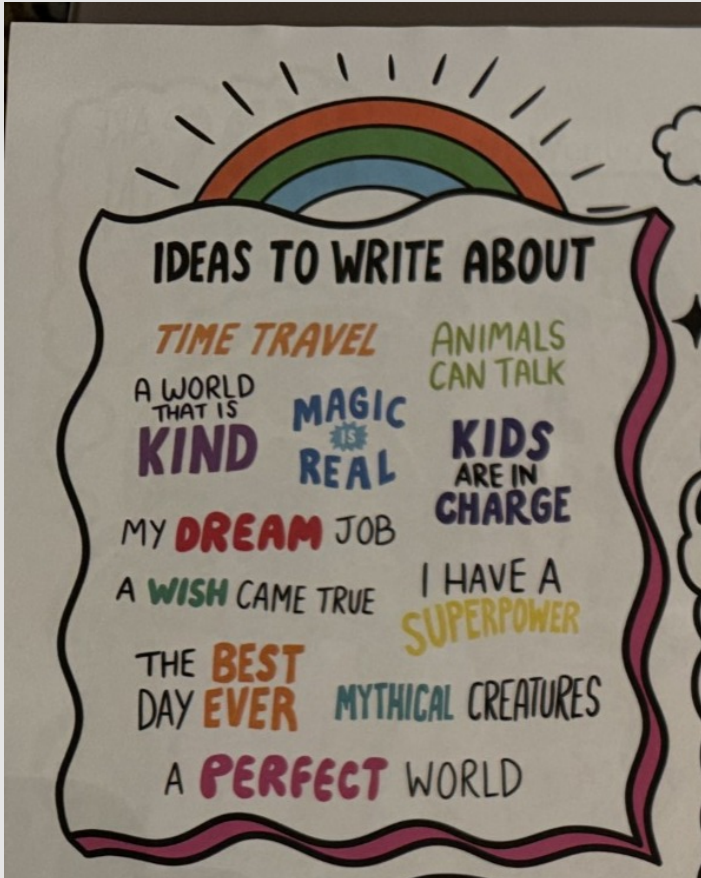 IDEAS TO WRITE ABOUT
TIME TRAVEL
ANIMALS
CAN TALK
A WORLD
THAT IS
KIND
MAGIC
IS
REAL
KIDS
ARE IN
CHARGE
MY DREAM JOB
A WISH CAME TRUE
I HAVE A
SUPERPOWER
THE BEST
DAY EVER
MYTHICAL CREATURES
A PERFECT WORLD